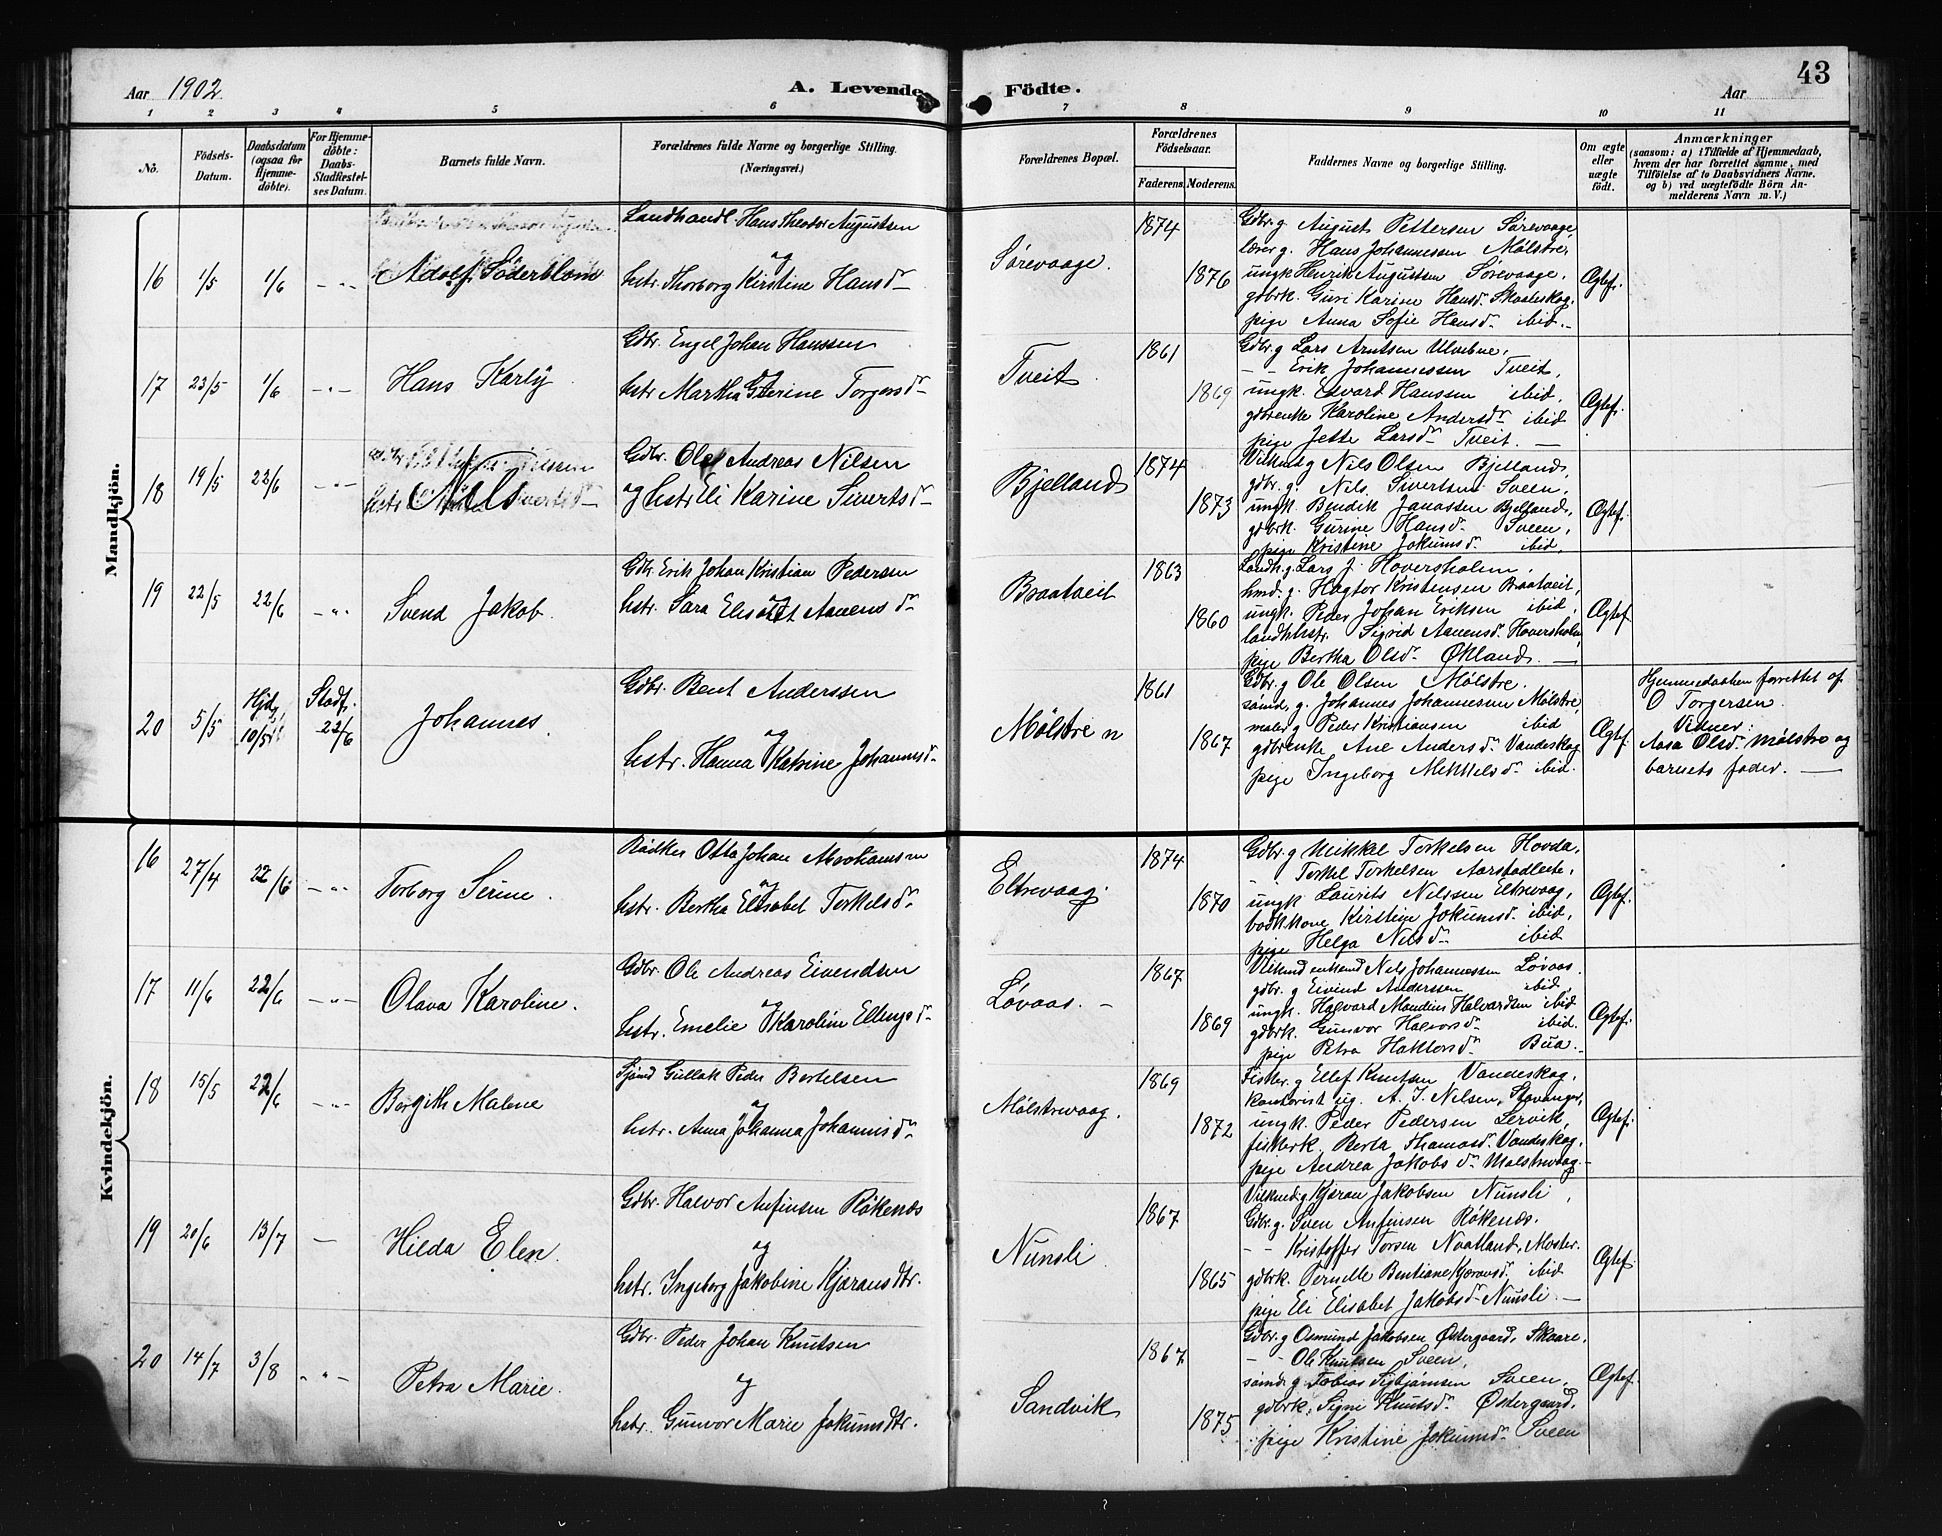 43
Aar 1902
A. Levende Födte.
Aar
1 2 3 4 5 6 7 8 9 10 11
No.
Födsels-Datum.
Daabsdatum (ogsaa for Hjemme-döbte).
For Hjemme-döbte: Daabs-Stadfæstel-ses Datum.
Barnets fulde Navn.
Forældrenes fulde Navne og borgerlige Stilling. (Næringsvei.)
Forældrenes Bopæl.
Forældrenes Födselsaar.
Faderens. Moderens.
Faddernes Navne og borgerlige Stilling.
Om ægte eller uægte födt.
Anmærkninger
(saasom: a) i Tilfælde af Hjemmedaab, hvem der har forrettet samme, med Tilföielse af to Daabsvidners Navne. og b) ved uægtefödte Börn An-melderens Navn m. V.)
Mandkjön.
16 1/5 1/6 - " - Adolf Söderblom
Landhandl. Hans Theodor Augustsen
og
hstr. Thorborg Kirstine Hansdr
Sørevaage.
1874
1876
Gdbr. g. August Pettersen Sørevaage,
lærer g. Hans Johannessen Mölstre,
ungk. Henrik Augustsen Sørevaage,
gdbrk. Guri Karine Hansdr Skaaleskog,
pige Anna Sofie Hansdr ibid.
Ægtef.
17 23/5 1/6 - " - Hans Karly
Gdbr. Engel Johan Hanssen
og
hstr Martha Gurine Torgersdr
Tveit
1861
1869
Gdbr. g Lars Arntsen
- - Erik Johannessen Tveit,
ungk. Edvard Hanssen ibid,
gdbrenke Karoline Andersdr ibid
pige Jette Larsdr Tveit.
Ægtef.
18 19/5 22/6 - " - Nils
Gdbr. Ole Andreas Nilsen
og hstr Eli Karine Sivertsdr
Bjelland
1874
1873
g Nils Olsen Bjelland,
gdbr. g. Nils Sivertsen Sveen,
ungk. Bendik Janassen Bjelland,
gdbrk. Gurine Hansdr Sveen,
pige Kristine Jokumsdr ibid.
Ægtef.
19 22/5 22/6 - " - Svend Jakob.
Gdbr. Erik Johan Kristian Pedersen
og
hstr. Sara Elisabet Aanensdr
Braatveit
1863
1860
Landh. g. Lars J. Hoversholm,
hmd. g. Hagtor Kristensen Braatveit,
ungk. Peder Johan Eriksen ibid,
landh.hstr. Sigrid Aanensdr Hoversholm,
pige Bertha Olsdr Økland.
Ægtef.
20 5/5 Hjd. 10/5 Stadf. 22/6 Johannes.
Gdbr. Bent Anderssen
og
hstr. Hanna Katrine Johannsdr
Mölstre n
1861
1867
Gdbr. g Ole Olsen Mölstre.
sömd. g. Johannes Johannessen Mölstre,
maler g Peder Kristiansen ibid
gdbrenke Ane Andersdr Vandeskog
pige Ingeborg Mikkelsdr ibid.
Ægtef.
Hjemmedaaben forrettet af
O Torgersen.
Vidner:
Aasa Olsdr Mölstre og
barnets fader.
Kvindekjön.
16 27/4 22/6 - " - Torborg Serine.
Otto Johan Abrahamsen
og
hstr. Bertha Elisabet Torkelsdr
Eltrevaag.
1874
1870
Gdbr. g Mikkel Torkelsen Hovda,
- Torkel Torkelsen
ungk Laurits Nilssen Eltrevaag,
Kirstine Jokumsdr ibid,
pige Helga Nilsdr ibid
Ægtef.
17 11/6 22/6 - " - Olava Karoline.
Gdbr. Ole Andreas Eivendsen
og
hstr. Emelie Karoline
Lövaas.
1867
1869
enkemd Nils Johannessen Lövaas.
gdbr. g Eivind Anderssen ibid,
ungk. Halvard Mandius Halvardsen ibid
gdbrk. Gunvor ibid.
pige Petra Haktorsdr Bua.
Ægtef.
18 15/5 22/6 - " - Borgith Malene
Sjömd Gullak Peder Bertelsen
og
hstr. Anna Johanna Johannisdr
Mölstrevaag.
1869
1872
Fisker. g Ellef Knutsen Vandeskog,
kontorist ug. A. I. Nilsen, Stavanger,
ungk. Peder Pedersen Lervik,
fiskerk. Berta Thomasdr Vandeskog,
pige Andrea Jakobsdr Mölstrevaag.
Ægtef.
19 20/6 13/7 - Hilda Elen.
Gdbr. Halvor Anfinsen Rökenes
og
hstr. Ingeborg Jakobine Kjæransdtr.
Nunsli
1867
1865
g Kjæran Jakobsen Nunsli,
Gdbr. g. Sven Anfinsen Rökenes.
- - Kristoffer Torsen Naatland, Moster.
gdbrk. Pernelle Bentiane Kjæransdr ibid
pige Eli Elisabet Jakobsdr Nunsli.
Ægtef.
20 14/7 3/8 - " - Petra Marie.
Gdbr. Peder Johan Knutsen
og
hstr. Gunvor Marie Jokumsdtr.
Sandvik
1867
1875
Gdbr. g Osmund Jakobsen Østergaard, Skaare.
- - Ole Knutsen Sveen,
sömd. g Tobias Sigbjørnsen Sveen,
gdbrk. Signi Knutsdr Østergaard.
pige Kristine Jokumsdr Sveen
Ægtef.